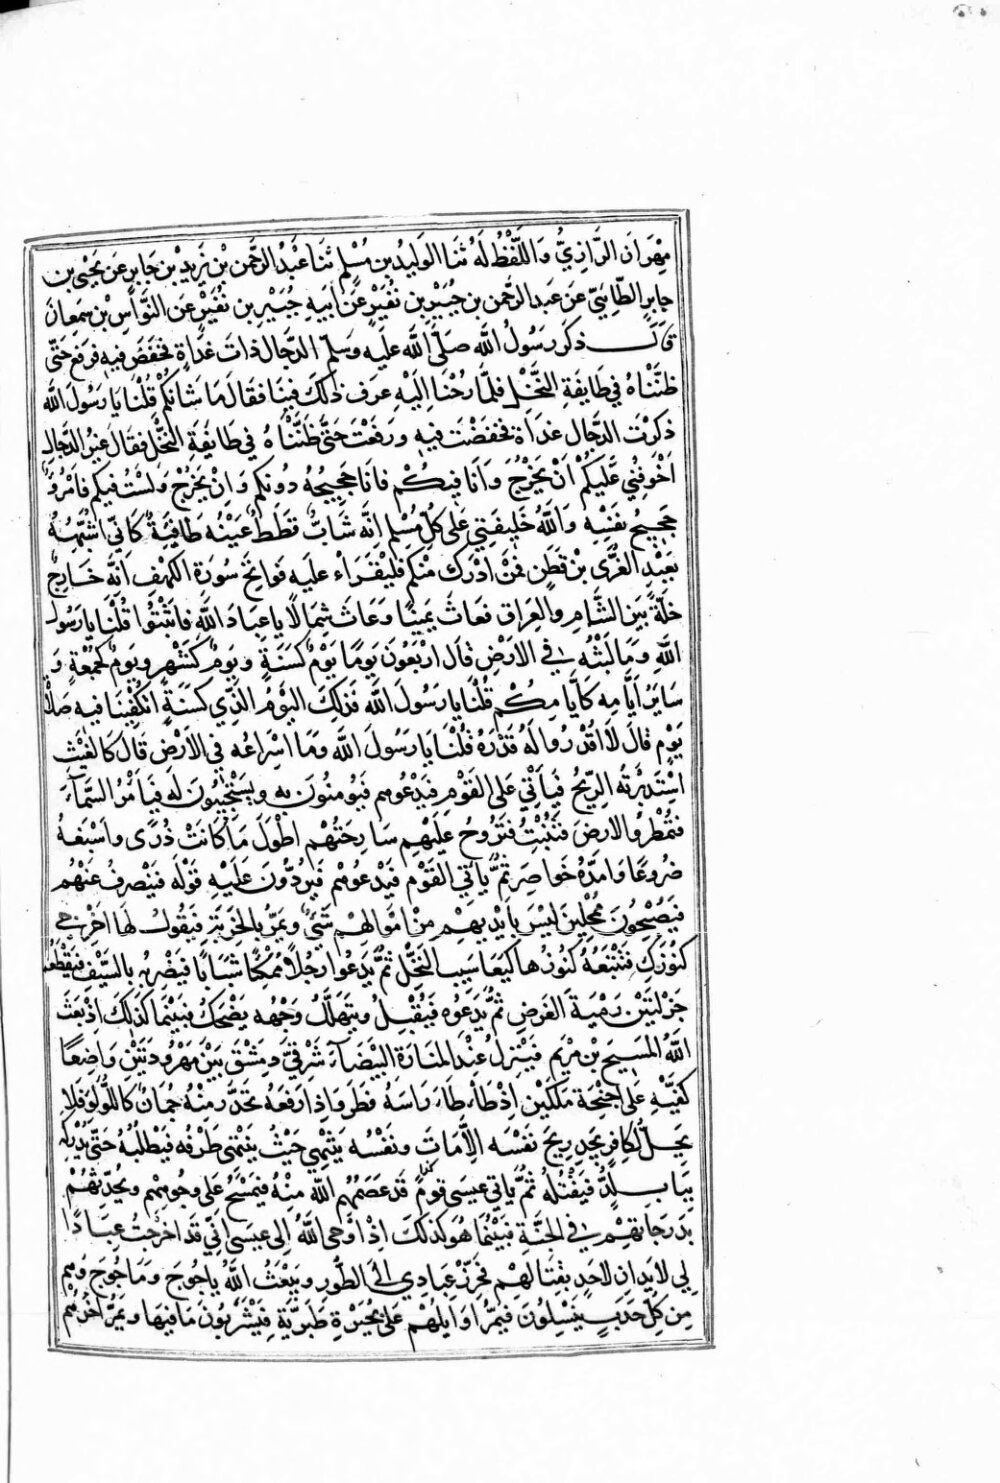 مِهْرَانَ الرَّازِيُّ وَاللَّفْظُ لَهُ ثَنَا الوَلِيدُ بن مُسْلِمٍ ثَنَا عَبْدُ الرَّحْمنِ بْنُ يَزِيدَ بْنِ جَابِرٍ عَنْ يَحْيَى بن
جابِرٍ الطَّائِيِّ عَنْ عَبدِ الرَّحمنِ بن جُبَيْرِ بْنِ نُفَيْرٍ عَنْ أَبِيهِ جُبَيْرِ بن نُفَيْرٍ عَنِ النَّوَّاسِ بْنِ سِمْعَانَ
قالَ ذكَرَ رَسُولُ اللَّه صَلَّى اللَّه عَلَيهِ وَسَلَّمَ الدَّجَّالَ ذاتَ غَدَاةٍ فَخَفَضَ فِيهِ وَرَفَعَ حَتَّى
ظَنَنَّاهُ في طَايفَةِ النَّخْلِ فلَمَّا رُحْنَا إِلَيْهِ عَرَفَ ذَلِكَ فِينَا فقَالَ مَا شَانُكُمْ قُلْنَا يَا رَسُولَ اللَّه
ذكَرْتَ الدَّجَّالَ غدَاةً فخَفَضْتَ فيهِ وَرَفَعْتَ حَتَّى ظَنَنَّاهُ في طَايفَةِ النَّخْلِ فقَالَ غَيْرُ الدَّجَّالِ
أَخْوَفُنِي عَلَيكُمْ أَنْ يَخْرُجْ وَأَنَا فِيكُمْ فأنَا حَجِيجُهُ دُونَكُمْ وَإِنْ يَخْرُجْ وَلَسْتُ فِيكُم فَامْرُؤٌ
حَجِيجُ نَفْسِهِ وَاللَّهُ خَلِيفَتِي عَلى كُلِّ مُسْلِمٍ إِنَّه شَابٌّ قَطَطٌ عَيْنُهُ طَافِيَةٌ كَأَنِّي أُشَبِّهُهُ
بعَبْدِ العُزَّى بْنِ قَطَنٍ فَمَنْ أَدْرَكَهُ مِنْكُم فَلْيَقْرَاء عَلَيهِ فَوَاتِحَ سُورَة الكَهْفِ إِنَّهُ خَارِجٌ
خَلَّةً بَيْنَ الشَّامِ والعِرَاقِ فعَاثَ يَمِينًا وَعَاثَ شِمَالًا يَا عِبَادَ اللَّهِ فاثْبُتُوا قُلْنَا يَا رَسُولَ
اللَّهِ وَمَا لَبْثُهُ في الأَرْضِ قالَ أَرْبَعُونَ يَوْمًا يَوْمٌ كَسَنَةٍ وَيَوْمٌ كَشَهْرٍ وَيَوْمٌ كَجُمُعَةٍ وَ
سَايِرُ أَيَّامِهِ كَأَيَّامِكُم قُلْنَا يَا رَسُولَ اللَّه فَذَلِكَ اليَوْمُ الَّذِي كَسَنَةٍ أَتَكْفِينَا فِيهِ صَلَاةُ
يَوْمٍ قالَ لَا اقْدُرُوا لَهُ قَدْرَهُ قُلْنَا يَا رَسُولَ اللَّه وَمَا إِسْرَاعُه في الأَرْضِ قَالَ كَالغَيْثِ
اسْتَدْبَرَتْهُ الرِّيحُ فَيَأْتِي عَلَى القَوْمِ فَيَدْعُوهُم فَيُومِنُونَ بِهِ وَيَسْتَجِيبُونَ لَه فَيَأْمُرُ السَّمَآءَ
فتُمْطِرُ والأَرْضَ فَتُنْبِتُ فتَرُوحُ عَلَيْهِم سَارِحَتُهُم أَطْوَلَ مَا كَانَتْ ذُرًى وأَسْبَغَهُ
ضُرُوعًا وَأَمَدَّهُ خَوَاصِرَ ثُمَّ يَاتي القَوْمَ فَيَدْعُوهُمْ فَيَرُدُّونَ عَلَيْهِ قَوْلَهُ فَيَنْصَرِفُ عَنْهُم
فَيُصْبِحُونَ مُمْحِلِينَ لَيْسَ بِأَيْدِيهِم مِنْ أَمْوَالِهِمْ شَيْءٌ وَيَمُرُّ بِالخَرِبَةِ فَيَقُولُ لَهَا أَخْرِجِي
كنُوزَكِ فَتَتْبَعُهُ كُنُوزُهَا كَيَعَاسِيبِ النَّخْلِ ثُمَّ يَدْعُوا رَجُلًا مُمْتَلِئًا شَبَابًا فَيَضْرِبُهُ بِالسَّيْفِ فَيَقْطَعُهُ
جَزْلَتَيْنِ رَمْيَةَ الغَرَضِ ثُمَّ يَدْعُوهُ فَيُقْبِلُ وَيَتَهَلَّلُ وَجْهُهُ يَضْحَكُ فَبَيْنَمَا كَذَلِكَ إِذْ بَعَثَ
اللَّهُ المَسِيحَ بْنَ مَرْيَم فَيَنْزِلُ عِنْدَ المَنَارَةِ البَيْضَآءِ شَرْقِيَّ دِمَشْقَ بَيْنَ مَهْرُودَتَيْنِ وَاضِعًا
كَفَّيْهِ عَلَى أَجْنِحَةِ مَلَكَيْنِ إِذَا طَأْطَأَ رَاسَهُ قَطَرَ وَإِذَا رَفَعَهُ تَحَدَّرَ مِنْهُ جُمَانٌ كَاللُّؤْلُؤِ فَلَا
يَحِلُّ لِكَافِرٍ يَجِدُ رِيحَ نَفَسِهِ إِلَّا مَاتَ وَنَفَسُهُ يَنْتَهِي حَيْثُ يَنْتَهِي طَرْفُهُ فَيَطْلُبُهُ حَتَّى يُدْرِكَهُ
بِبَابِ لُدٍّ فَيَقْتُلُهُ ثُمَّ يَاتِي عِيسَى قَومٌ قَدْ عَصَمَهُمُ اللَّهُ مِنْهُ فَيَمْسَحُ عَلَى وُجُوهِهِمْ وَيُحَدِّثُهُمْ
بِدَرَجَاتِهِمْ في الجَنَّةِ فَبَيْنَمَا هُوَ كَذَلِكَ إِذْ أَوْحَى اللَّهُ إِلَى عِيسَى إِنِّي قَدْ أَخْرَجْتُ عِبَادًا
لِي لَا يَدَانِ لِأَحَدٍ بِقِتَالِهِمْ فَحَرِّزْ عِبَادِي إِلَى الطُّورِ وَيَبْعَثُ اللَّهُ يَاجُوجَ وَمَاجُوجَ وَهُم
مِن كُلِّ حَدَبٍ يَنْسِلُونَ فَيَمُرُّ أَوَايِلُهُم عَلَى بُحَيْرَةِ طَبَرِيَّةَ فَيَشْرَبُونَ مَا فِيهَا وَيَمُرُّ آخِرُهُم